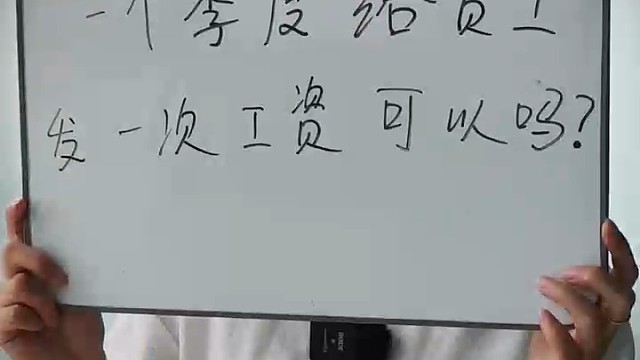 一个季度给员工
发一次工资可以吗?